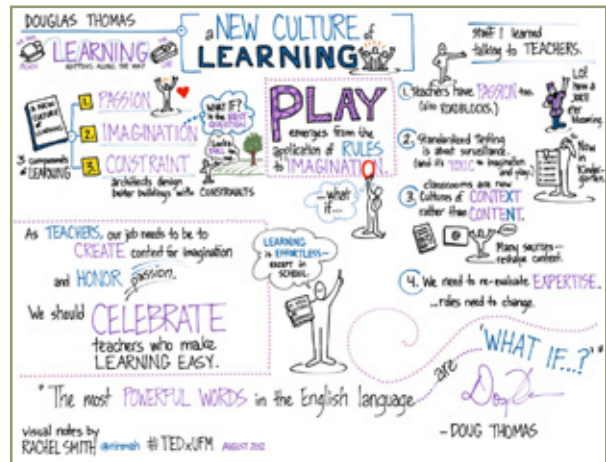 DOUGLAS THOMAS
a NEW CULTURE of
LEARNING
LEARNING
HAPPENS ALONG THE WAY
A NEW
CULTURE
of
LEARNING
3 components
of LEARNING
1. PASSION
2. IMAGINATION
3. CONSTRAINT
architects design
better buildings with CONSTRAINTS
WHAT IF?
is the BEST
QUESTION!
PLAY
emerges from the
application of RULES
to IMAGINATION.
—what
if...
stuff I learned
talking to TEACHERS.
1. Teachers have PASSION too.
(also ROADBLOCKS.)
2. Standardized Testing
is about surveillance.
(and it's TOXIC to imagination
and play.)
Now in
Kinder-
garten.
classrooms are now
3. Cultures of CONTEXT
rather than CONTENT.
Many sources—
reshape content.
4. We need to re-evaluate EXPERTISE.
...roles need to change.
As TEACHERS, our job needs to be to
CREATE context for imagination
and HONOR passion.
We should CELEBRATE
teachers who make
LEARNING EASY.
LEARNING
is EFFORTLESS—
EXCEPT IN
SCHOOL.
"The most POWERFUL WORDS in the English language are
'WHAT IF...?'"
—DOUG THOMAS
visual notes by
RACHEL SMITH @ninmah # TEDxUFM AUGUST 2012